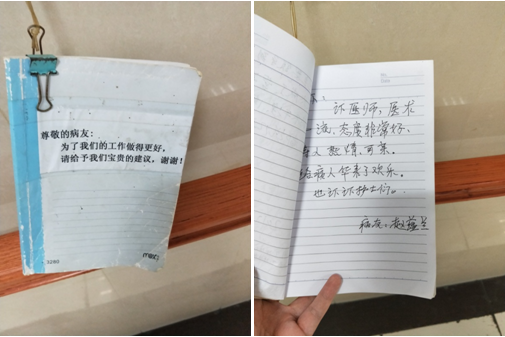 尊敬的病友:
为了我们的工作做得更好,
请给予我们宝贵的建议,谢谢!
3280
医师,医术
流,态度非常好,
人热情,可亲。
病人带来了欢乐。
也谢谢护士们。
病友:赵